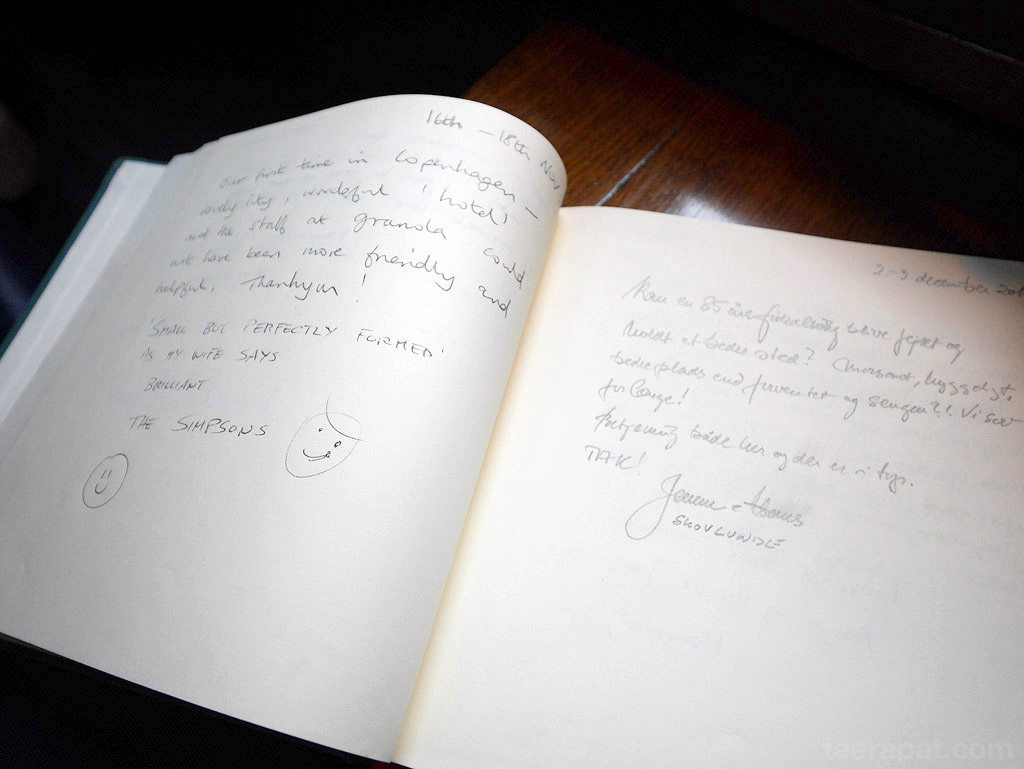 16th - 18th Nov
Our first time in Copenhagen -
lovely city, wonderful 'hotel'
and the staff at granola could
not have been more friendly and
helpful. Thankyou!
'SMALL BUT PERFECTLY FORMED'
AS MY WIFE SAYS
BRILLIANT
THE SIMPSONS
2-3 december
Kan en 85 års fødselsdag blive fejret og
holdt et bedre sted? Morsomt, hyggeligt,
bedre plads end forventet og sengen?! Vi sov
for længe!
Betjening både her og der er i top.
TAK!
SKOVLUNDE
teerapat.com